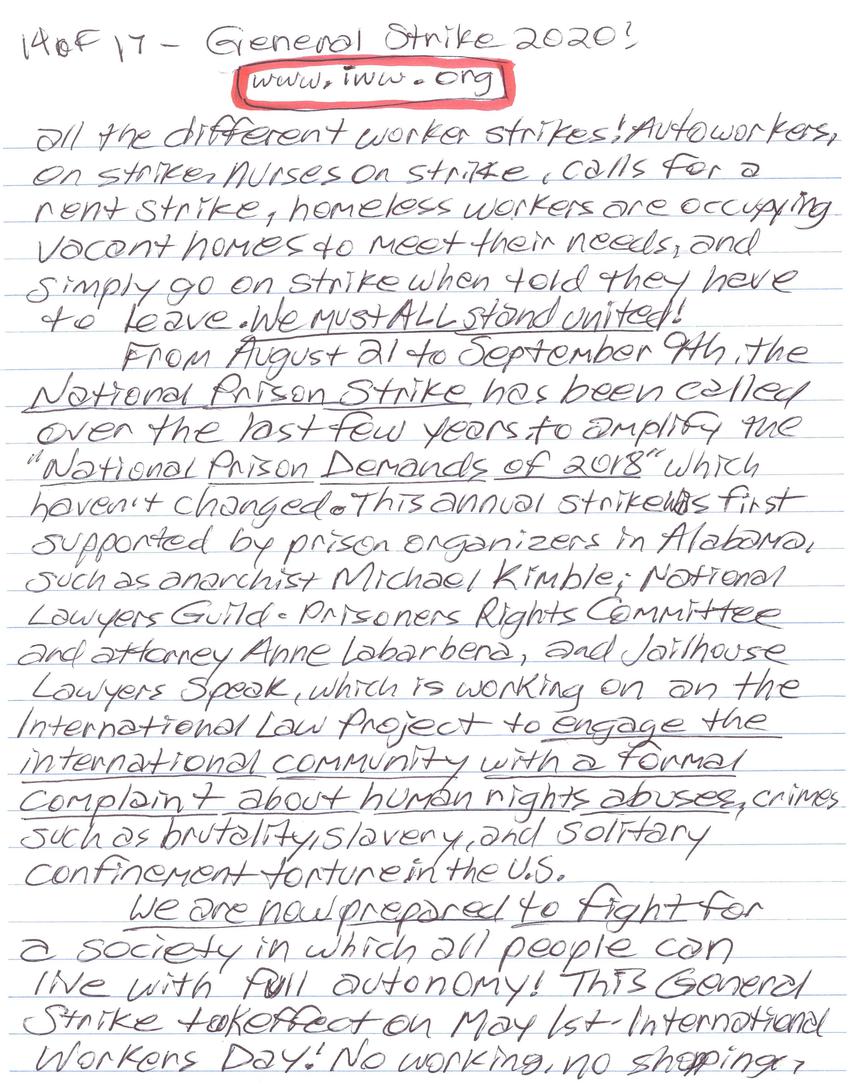 14 of 17 - General Strike 2020!
www.iww.org
all the different worker strikes! Autoworkers,
on strike, nurses on strike, calls for a
rent strike, homeless workers are occupying
vacant homes to meet their needs, and
simply go on strike when told they have
to leave. We must ALL stand united!
From August 21 to September 9th, the
National Prison Strike has been called
over the last few years, to amplify the
"National Prison Demands of 2018" which
haven't changed. This annual strike was first
supported by prison organizers in Alabama,
such as anarchist Michael Kimble; National
Lawyers Guild - Prisoners Rights Committee
and attorney Anne Labarbera, and Jailhouse
Lawyers Speak, which is working on an the
International Law Project to engage the
international community with a formal
complaint about human rights abuses, crimes
such as brutality, slavery, and solitary
confinement torture in the U.S.
We are now prepared to fight for
a society in which all people can
live with full autonomy! This General
Strike takeffect on May 1st - International
Workers Day! No working, no shopping,